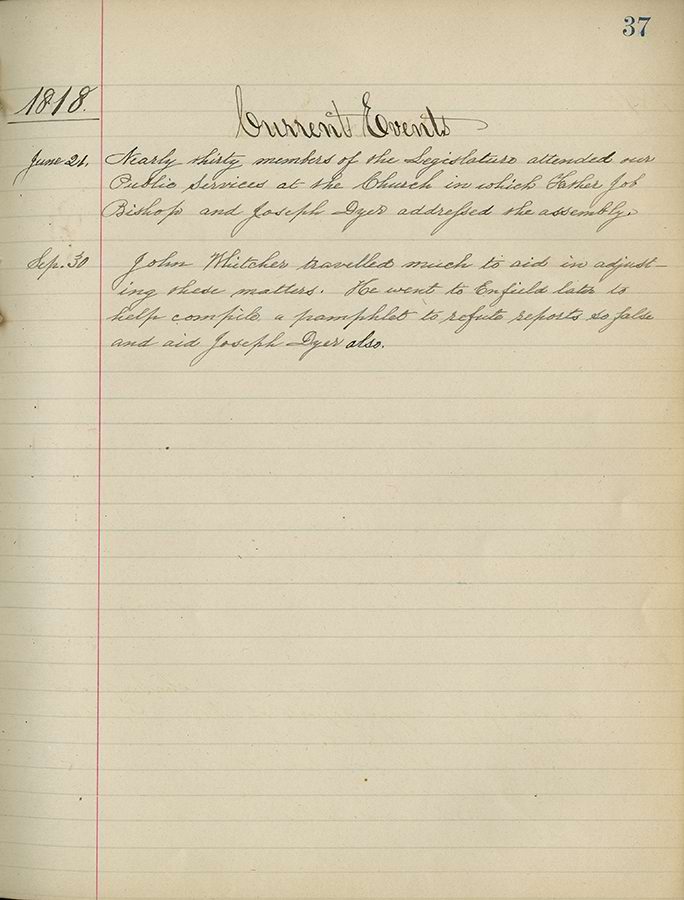 37
1818.
Current Events
June 21. Nearly thirty members of the Legislature attended our
Public Services at the Church in which Father Job
Bishop and Joseph Dyer addressed the assembly.
Sep. 30 John Whitcher travelled much to aid in adjust-
ing these matters. He went to Enfield later to
help compile a pamphlet to refute reports so false
and aid Joseph Dyer also.